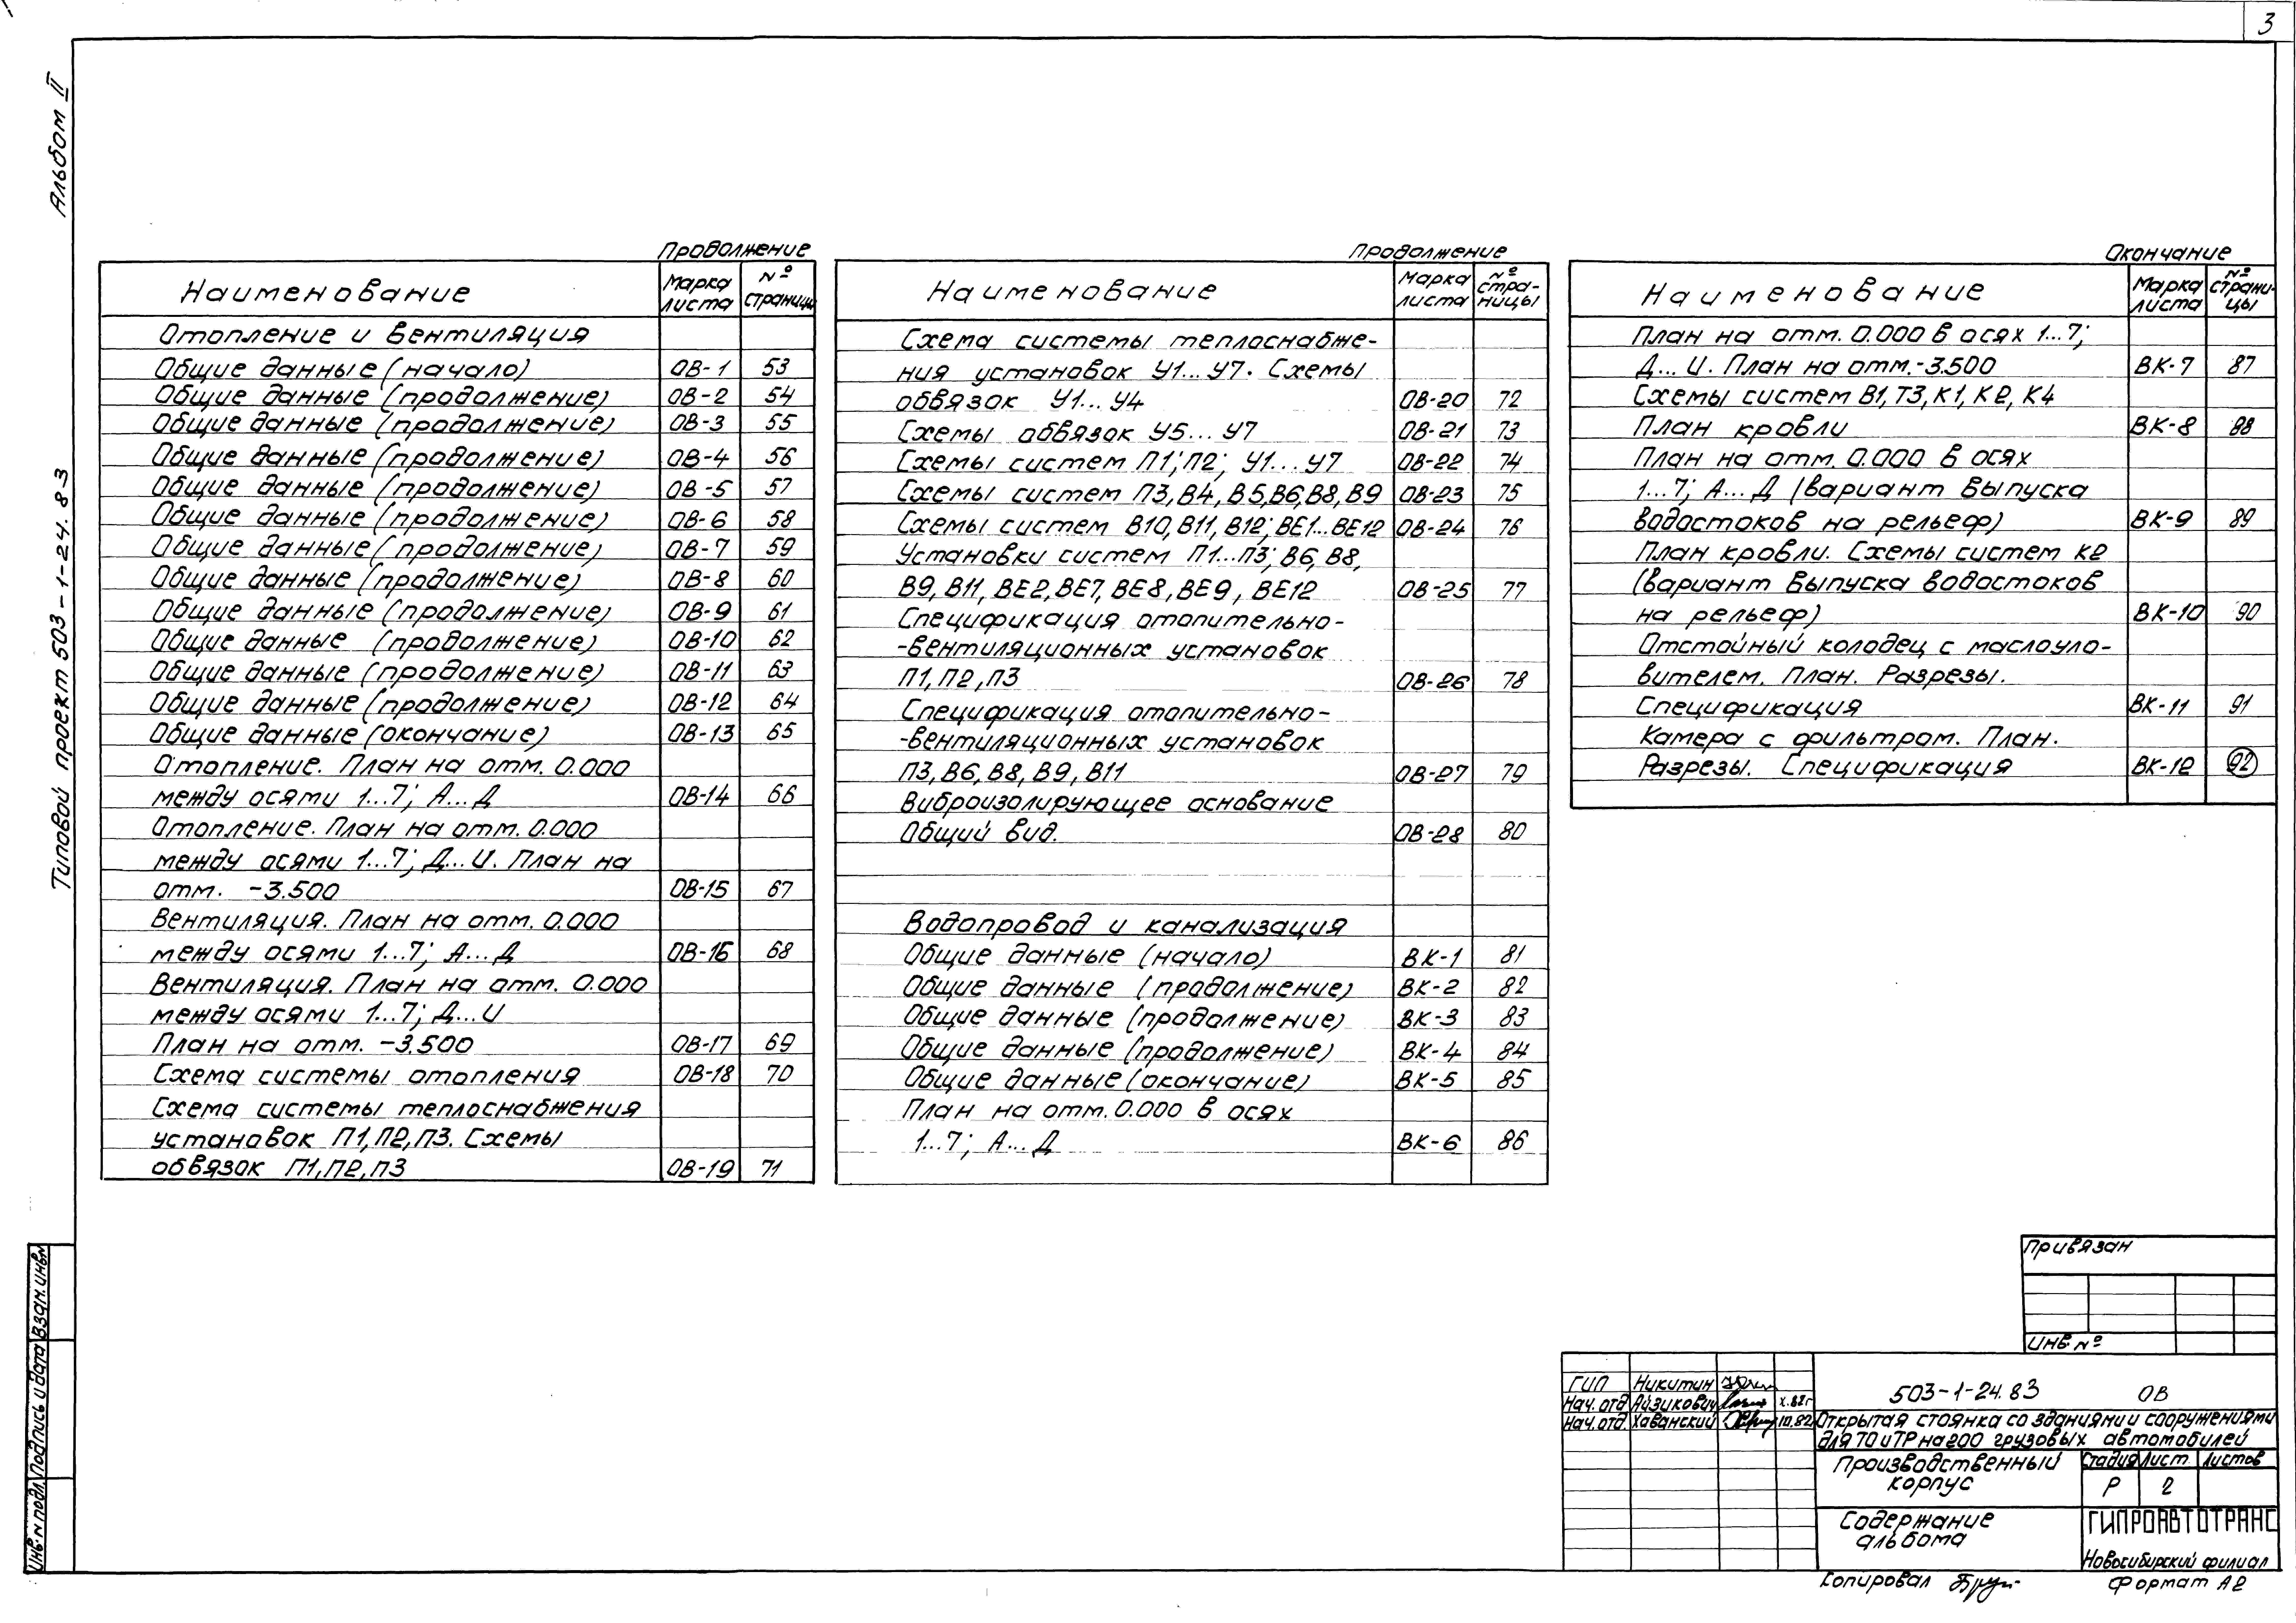 3
Альбом II
Типовой проект 503-1-24.83
Продолжение
Наименование
Марка листа
№ страницы
Отопление и вентиляция
Общие данные (начало) ОВ-1 53
Общие данные (продолжение) ОВ-2 54
Общие данные (продолжение) ОВ-3 55
Общие данные (продолжение) ОВ-4 56
Общие данные (продолжение) ОВ-5 57
Общие данные (продолжение) ОВ-6 58
Общие данные (продолжение) ОВ-7 59
Общие данные (продолжение) ОВ-8 60
Общие данные (продолжение) ОВ-9 61
Общие данные (продолжение) ОВ-10 62
Общие данные (продолжение) ОВ-11 63
Общие данные (продолжение) ОВ-12 64
Общие данные (окончание) ОВ-13 65
Отопление. План на отм. 0.000
между осями 1...7; А...Д ОВ-14 66
Отопление. План на отм. 0.000
между осями 1...7; Д...И. План на
отм. -3.500 ОВ-15 67
Вентиляция. План на отм. 0.000
между осями 1...7; А...Д ОВ-16 68
Вентиляция. План на отм. 0.000
между осями 1...7; Д...И
План на отм. -3.500 ОВ-17 69
Схема системы отопления ОВ-18 70
Схема системы теплоснабжения
установок П1, П2, П3. Схемы
обвязок П1, П2, П3 ОВ-19 71
Продолжение
Наименование
Марка листа
№ стра-ницы
Схема системы теплоснабже-
ния установок У1...У7. Схемы
обвязок У1...У4 ОВ-20 72
Схемы обвязок У5...У7 ОВ-21 73
Схемы систем П1; П2; У1...У7 ОВ-22 74
Схемы систем П3, В4, В5, В6, В8, В9 ОВ-23 75
Схемы систем В10, В11, В12; ВЕ1...ВЕ12 ОВ-24 76
Установки систем П1...П3; В6, В8,
В9, В11, ВЕ2, ВЕ7, ВЕ8, ВЕ9, ВЕ12 ОВ-25 77
Спецификация отопительно-
-вентиляционных установок
П1, П2, П3 ОВ-26 78
Спецификация отопительно-
-вентиляционных установок
П3, В6, В8, В9, В11 ОВ-27 79
Виброизолирующее основание
Общий вид. ОВ-28 80
Водопровод и канализация
Общие данные (начало) ВК-1 81
Общие данные (продолжение) ВК-2 82
Общие данные (продолжение) ВК-3 83
Общие данные (продолжение) ВК-4 84
Общие данные (окончание) ВК-5 85
План на отм. 0.000 в осях
1...7; А...Д ВК-6 86
Окончание
Наименование
Марка листа
№ страни-цы
План на отм. 0.000 в осях 1...7;
Д...И. План на отм. -3.500 ВК-7 87
Схемы систем В1, Т3, К1, К2, К4
План кровли ВК-8 88
План на отм. 0.000 в осях
1...7; А...Д (вариант выпуска
водостоков на рельеф) ВК-9 89
План кровли. Схемы систем К2
(вариант выпуска водостоков
на рельеф) ВК-10 90
Отстойный колодец с маслоуло-
вителем. План. Разрезы.
Спецификация ВК-11 91
Камера с фильтром. План.
Разрезы. Спецификация ВК-12 92
Привязан
Инв. №
ГИП Никитин
Нач. отд Айзикович X.82г
Нач. отд Хаванский 10.82
503-1-24.83 ОВ
Открытая стоянка со зданиями и сооружениями
для ТО и ТР на 200 грузовых автомобилей
Производственный
корпус
Стадия Лист Листов
Р 2
Содержание
альбома
ГИПРОАВТОТРАНС
Новосибирский филиал
Копировал
Формат А2
Инв. N подл. Подпись и дата Взам. инв N